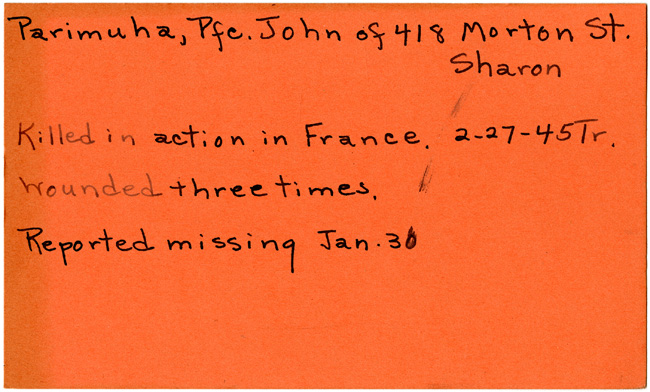 Parimuha, Pfc. John of 418 Morton St.
Sharon
Killed in action in France. 2-27-45 Tr.
Wounded three times.
Reported missing Jan. 30